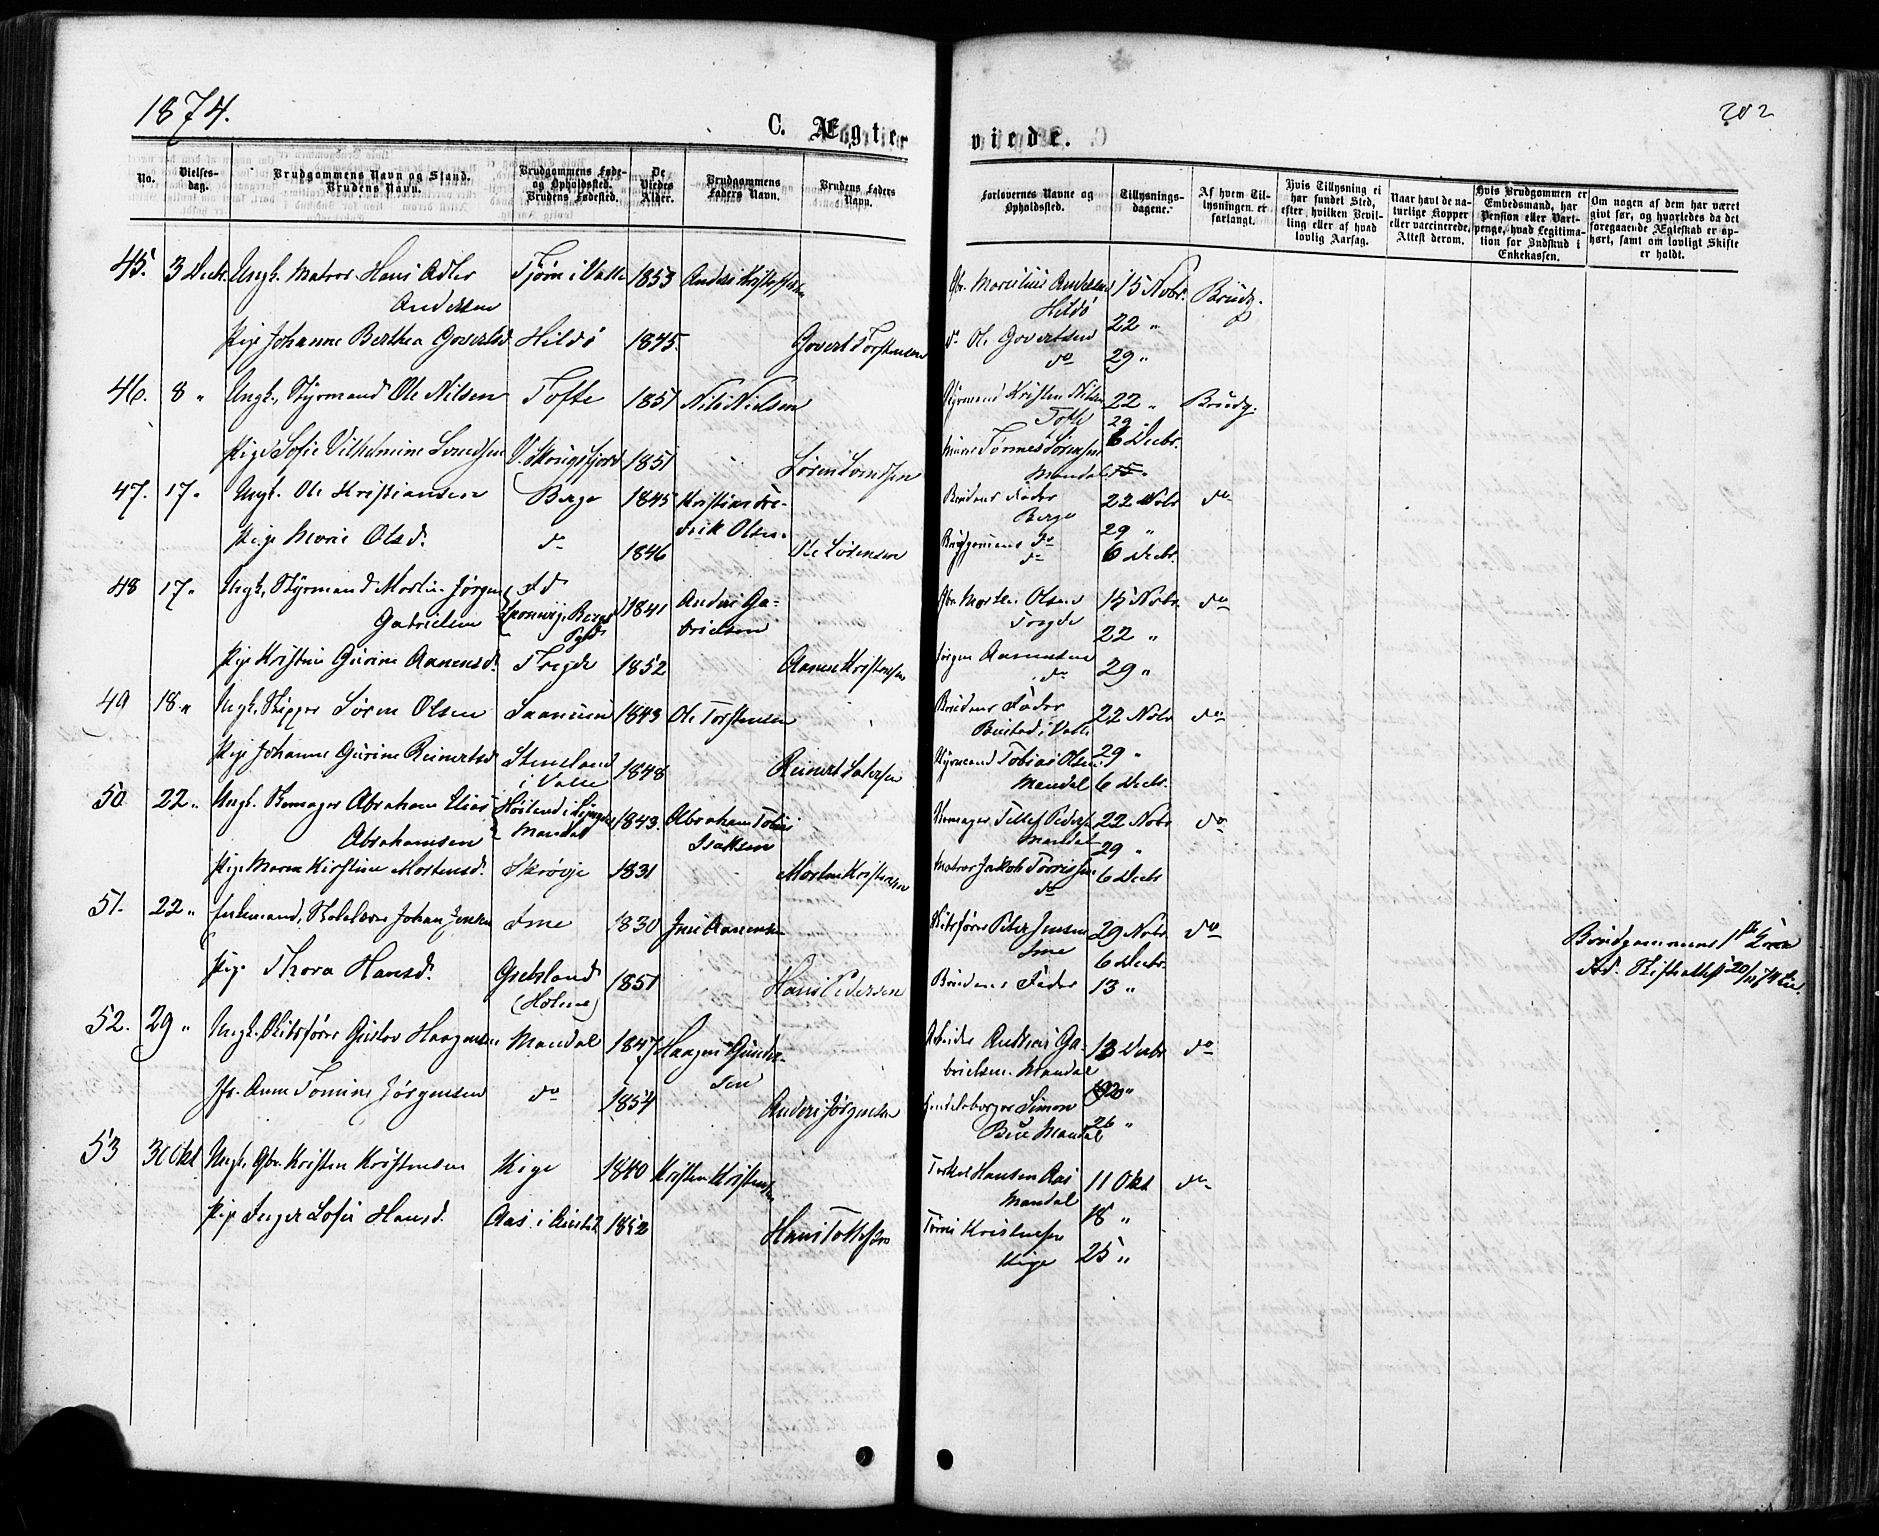 1874.
C. Ægte-
viede.
202
No.
Vielses-
dag.
Brudgommens Navn og Stand.
Brudens Navn.
Brudgommens Føde-
og Opholdsted.
Brudens Fødested.
De
Viedes
Alder.
Brudgommens
Faders Navn.
Brudens Faders
Navn.
Forlovernes Navne og
Opholdsted.
Tillysnings-
dagene.
Af hvem Til-
lysningen er
forlangt.
Hvis Tillysning ei
har fundet Sted,
efter hvilken Bevil-
ling eller af hvad
lovlig Aarsag.
Naar havt de na-
turlige Kopper
eller vaccinerede,
Attest derom.
Hvis Brudgommen er
Embedsmand, har
Pension eller Vart-
penge, hvad Legitima-
tion for Indskud i
Enkekassen.
Om nogen af dem har været
givt før, og hvorledes da det
foregaaende Ægteskab er op-
hørt, samt om lovligt Skifte
er holdt.
45. 3 Decbr. Ungk. Matros Hans Adler Tjørn i Valle 1853 Anders Kristoffersen Gbr. Marcelius Andersen 15 Novbr. Brudg.
Andersen Hildø 22 "
Pige Johanne Berthea Govertsd. Hildø 1845. Govert Torstensen do Ole Govertsen
do 29 "
46. 8 " Ungk., Styrmand Ole Nilsen Tofte 1851 Nils Nielsen Styrmand Kristen Nilsen 22 " Brudg.
Tofte 29
Pige Sofie Vilhelmine Sørensen V. Skougsfjord 1851 Tønnes Sørensen 6 Decbr.
Mandal
47. 17 " Ungk. Ole Kristiansen Berge 1845 Kristian Fre- Brudens Fader 22 Nobr do
Berge
Pige Marie Olsd. do 1846 drik Olsen Ole Sørensen 29 "
Brudgommens do
do 6 Decbr.
48 17 " Ungk., Styrmand Martin Jørgen 1841 Anders Ga- Gbr Morten Olsen 15 Nobr. do
Gabrielsen brielsen Tregde 22 "
Pige Kristine Gurine Aanensd. Tregde 1852 Aanen Kristensen Jørgen Aanensen 29 "
do
49 18 " Ungk. Skipper Søren Olsen Saanum 1843 Ole Torstensen Brudens Fader 22 Nobr do
i Valle
Pige Johanne Gurine Reinertsd. Steensland 1848 Reinert Salvesen Styrmand Tobias Olsen 29 "
i Valle Mandal 6 Decbr.
50. 22 " Ungk. Skomager Abraham Elias 1843. Abraham Tobias Skomager Tellef Pedersen 22 Nobr do
Abrahamsen Mandal Isaksen Mandal 29 "
Pige Maren Kirstine Mortensd. Skrøije 1831 Morten Kristensen Matros Jakob Torrissen 6 Decbr
do
51. 22 " Enkemand, Skolelærer Johan Jensen Ime 1830 Jens Aanensen Skibsfører Peter Jensen 29 Nobr do Brudgommens 1ste
Ime 6 Decbr.
Pige Thora Hansd. Gusland 1851 Hans Pedersen Brudens Fader 13 "
(Holme)
52. 29 " Ungk. Skibsfører Gustav Haagensen Mandal 1847 Haagen Gunder- Arbeider Andreas Ga- 13 Decbr do
sen brielsen. Mandal
Jfr. Anne Tomine Jørgensen do 1854 Anders Jørgensen Handelsborger Simon
Bue Mandal 26 "
53 30 Okt Ungk. Gbr. Kristen Kristensen Kige 1840 Kristen Kristensen Torkel Hansen Aas 11 Okt do
Mandal
Pige Inger Sofie Hansd. Aas i 1852 Hans Tollefsen 18 "
Tønnes Kristensen
Kige 25 "